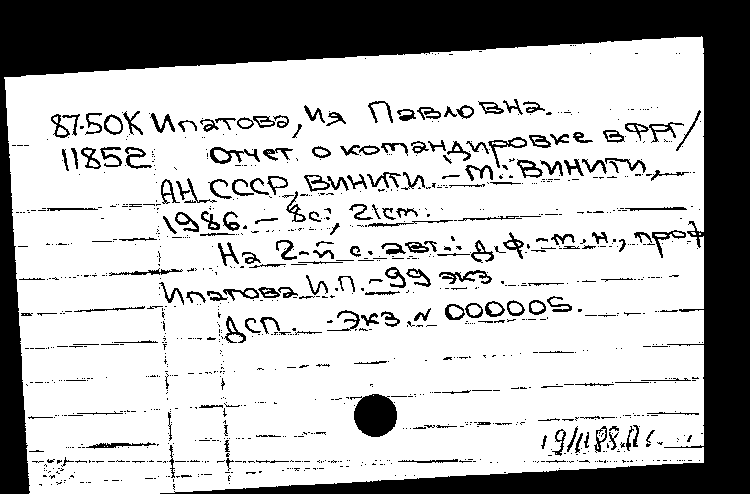 87-50К Ипатова, Ия Павловна.
11852 Отчет о командировке в ФРГ/
АН СССР, ВИНИТИ. - М.: ВИНИТИ,
1986. - 8с.; 21см.
На 2-й с. авт.: д.ф.-м.н., проф
Ипатова И.П. - 99 экз.
ДСП. - Экз. № 000005.